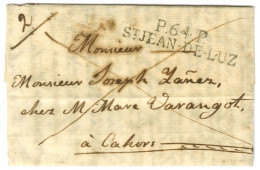 2
P. 64. P.
ST JEAN-DE-LUZ
Monsieur
Monsieur Joseph Yañez,
chez M. Marc Varangot,
à Cahors